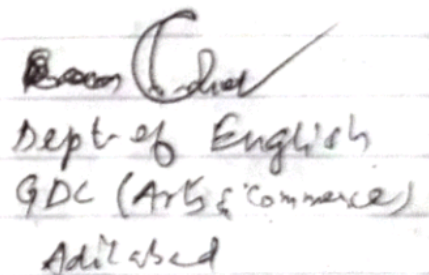 Dept of English
GDC (Arts & Commerce)
Adilabad